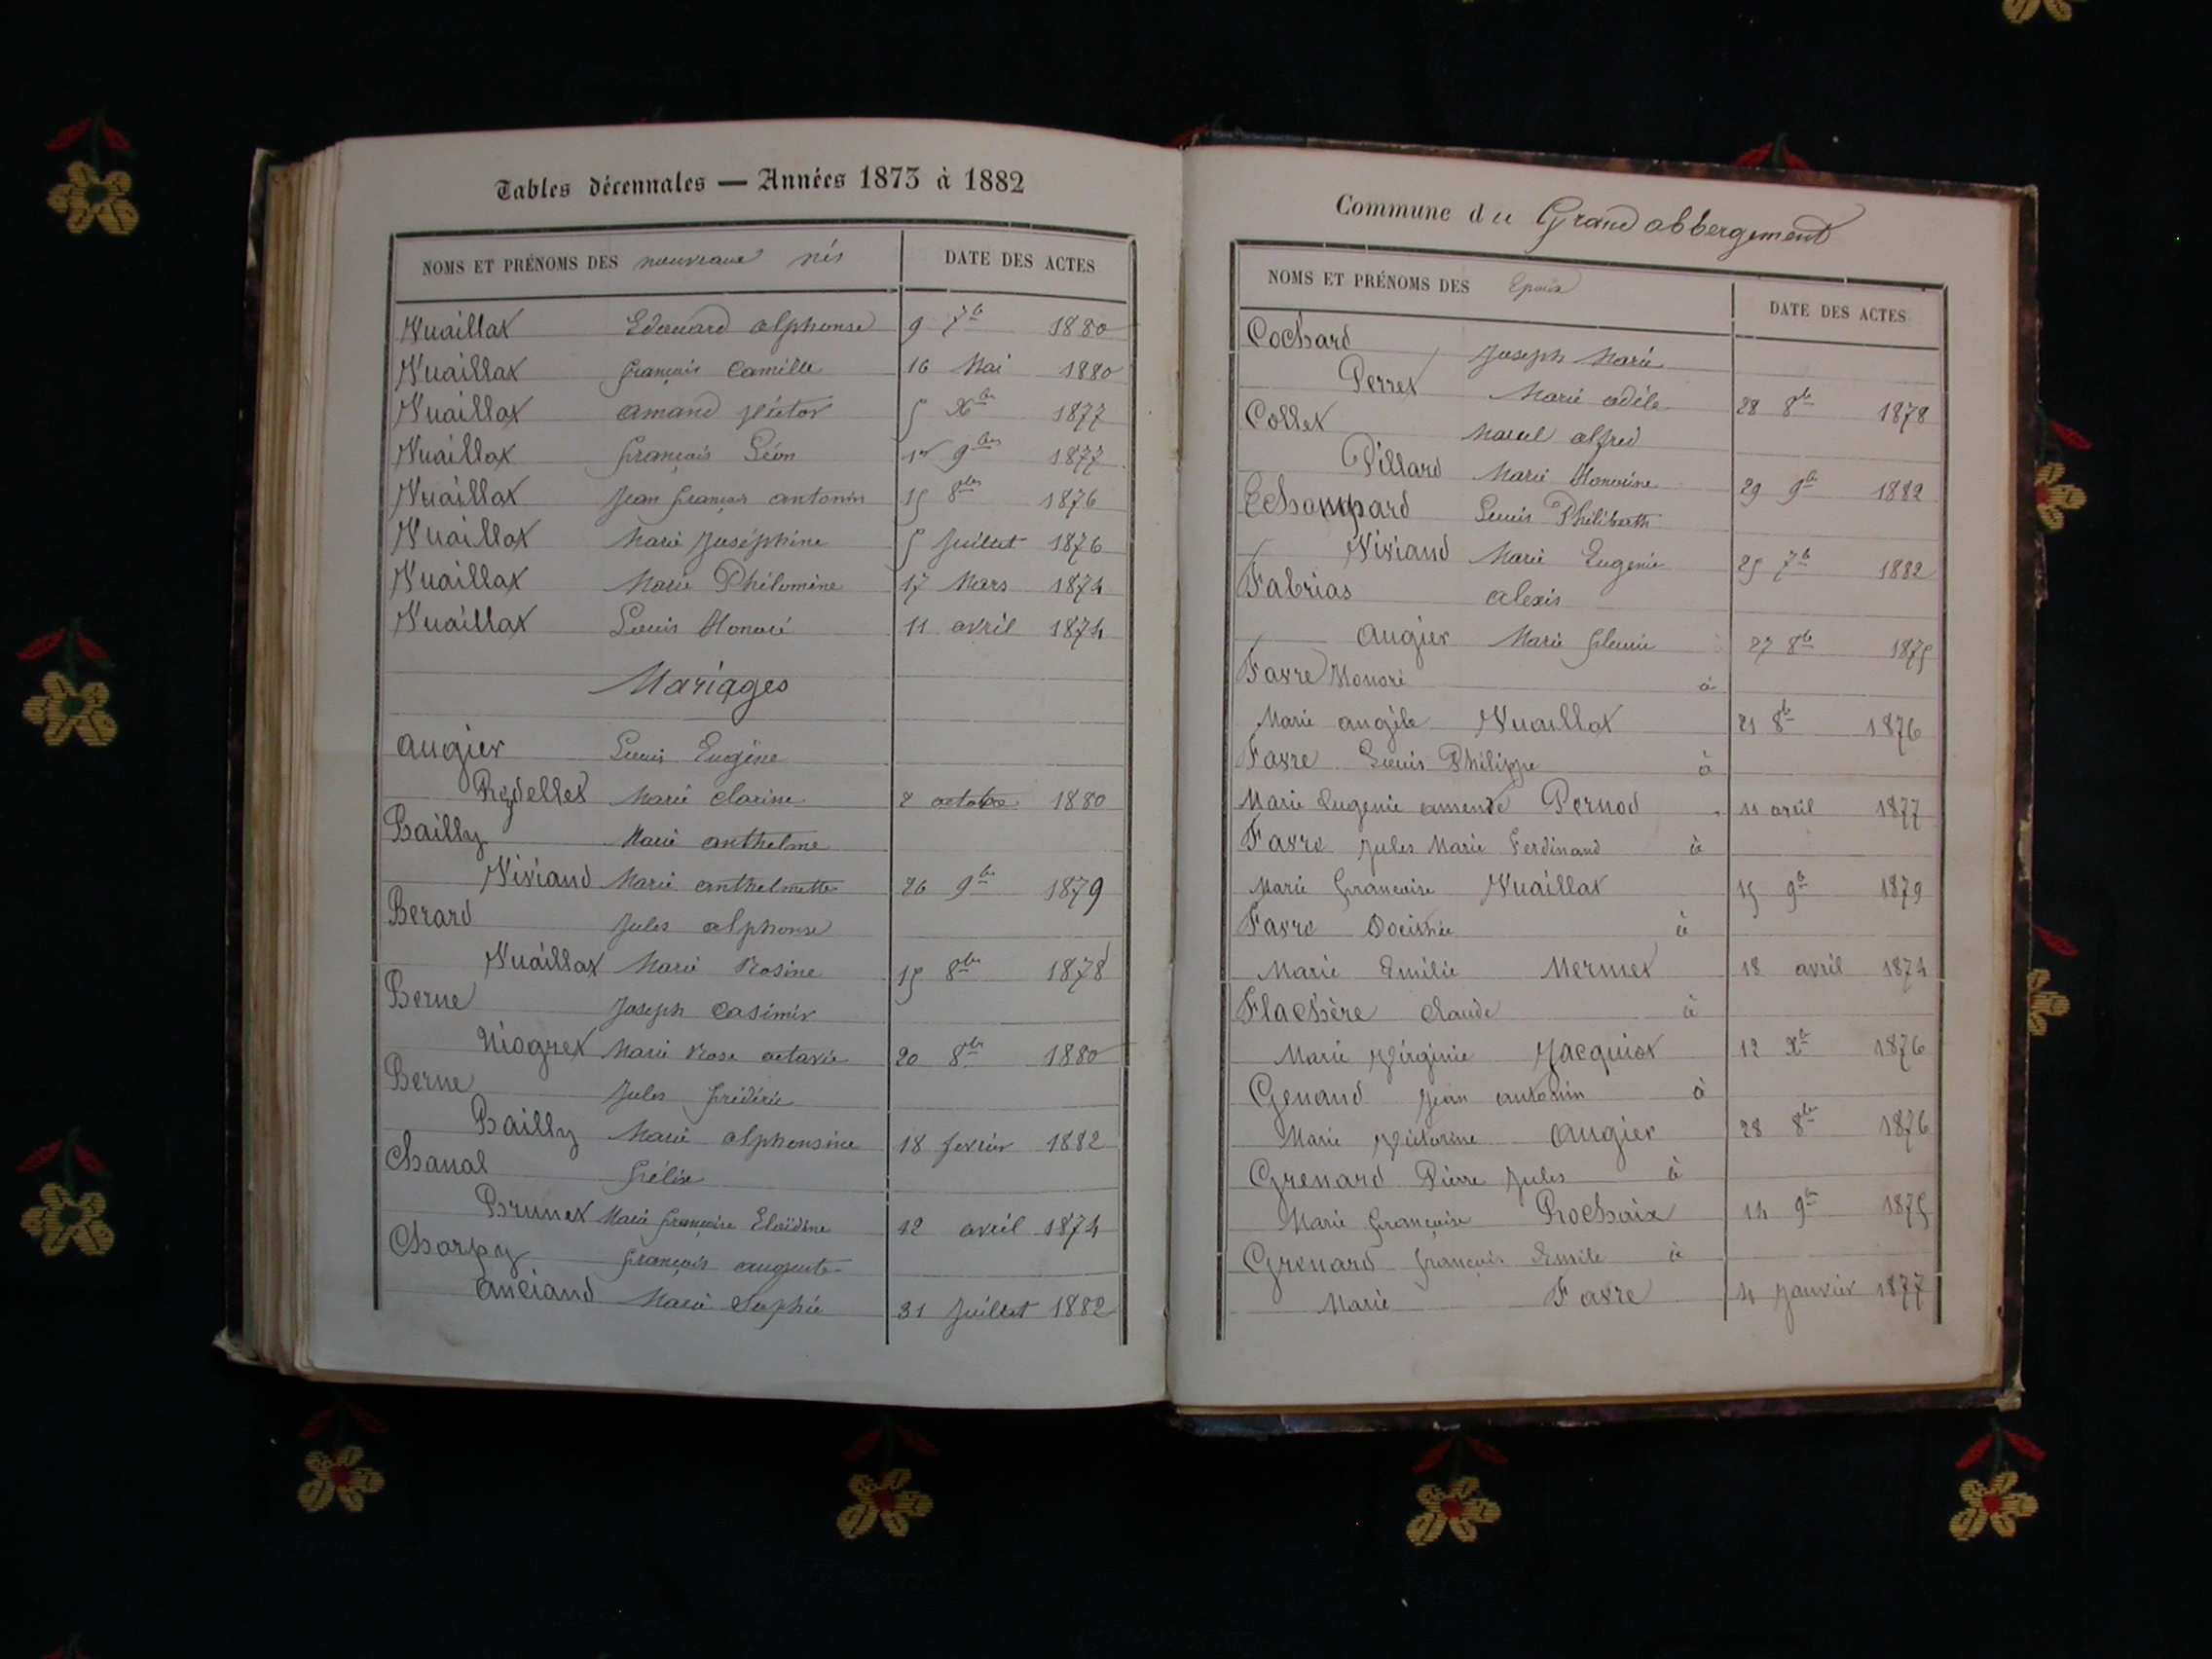 Tables décennales — Années 1873 à 1882
NOMS ET PRÉNOMS DES nouveaux nés DATE DES ACTES
Vuaillat Edouard alphonse 9 7bre 1880
Vuaillat françois Camille 16 Mai 1880
Vuaillat amand victor 5 Xbre 1877
Vuaillat françois Léon 1er 9bre 1877
Vuaillat Jean françois antonin 15 8bre 1876
Vuaillat Marie Joséphine 5 Juillet 1876
Vuaillat Marie Philomène 17 Mars 1874
Vuaillat Louis Honoré 11 avril 1874
Mariages
Augier Louis Eugène
Rydellet Marie clarine 2 octobre 1880
Bailly Marie anthelme
Viviand Marie anthelmette 26 9bre 1879
Berard Jules alphonse
Vuaillat Marie Rosine 15 8bre 1878
Berne Joseph Casimir
Niogret Marie Rose octavie 20 8bre 1880
Berne Jules frédéric
Bailly Marie alphonsine 18 fevrier 1882
Chanal félix
Brunet Marie françoise Eloïdine 12 avril 1874
Charpy françois auguste
Anciand Marie Sophie 31 Juillet 1882
Commune du Grand abbergement
NOMS ET PRÉNOMS DES Epoux DATE DES ACTES
Cochard Joseph Marie
Perret Marie adèle 28 8bre 1878
Collet Marcel alfred
Pillard Marie Honorine 29 9bre 1882
Echampard Louis Philibert
Viviand Marie Eugenie 25 7bre 1882
Fabrias alexis
Augier Marie 27 8bre 1875
Favre Honoré à
Marie angèle Vuaillat 21 8bre 1876
Favre Louis Philippe à
Marie Eugenie amende Pernod 11 avril 1877
Favre Jules Marie Ferdinand à
Marie françoise Vuaillat 15 9bre 1879
Favre à
Marie Emilie Mermet 18 avril 1874
Flachère claude à
Marie Virginie Jacquiot 12 Xbre 1876
Genand Jean antonin à
Marie Victorine Augier 28 8bre 1876
Grenard Pierre Jules à
Marie françoise Rochaix 14 9bre 1875
Grenard françois Emile à
Marie Favre 4 Janvier 1877